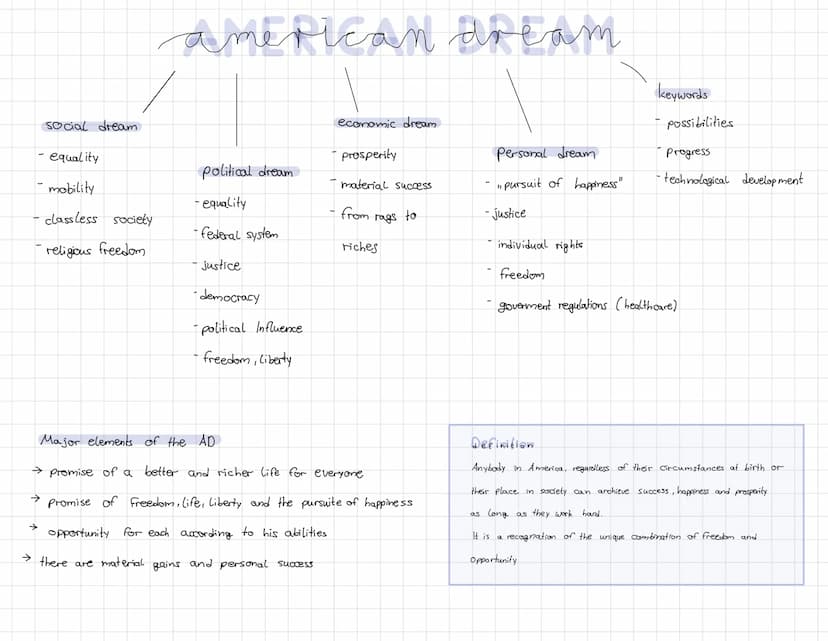 AMERICAN DREAM
american dream
social dream
- equality
- mobility
- classless society
- religious freedom
political dream
- equality
- federal system
- justice
- democracy
- political influence
- freedom, liberty
economic dream
- prosperity
- material success
- from rags to
riches
personal dream
- „pursuit of happiness"
- justice
- individual rights
- freedom
- goverment regulations (healthcare)
keywords
- possibilities
- progress
- technological development
Major elements of the AD
→ promise of a better and richer life for everyone
→ promise of freedom, life, liberty and the pursuite of happiness
→ opportunity for each according to his abilities
→ there are material gains and personal success
Definition
Anybody in America, regardless of their circumstances at birth or
their place in society can archieve success, happiness and prosperity
as long as they work hard.
It is a recognation of the unique combination of freedom and
opportunity